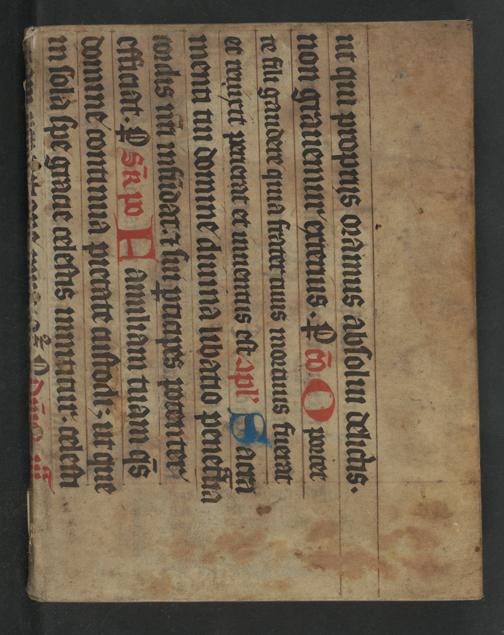 ut qui proprijs oramus absolui delictis.
non grauemur externis. P co Oportet
te fili gaudere quia frater tuus mortuus fuerat
et reuixit perierat et inuentus est apl' Sacra
menti tui domine diuina libatio penetralia
cordis nri infundat et sui participes potenter
efficiat. P Sr po Familiam tuam qs
domine continua pietate custodi; ut que
in sola spe gratie celestis innititur. celesti